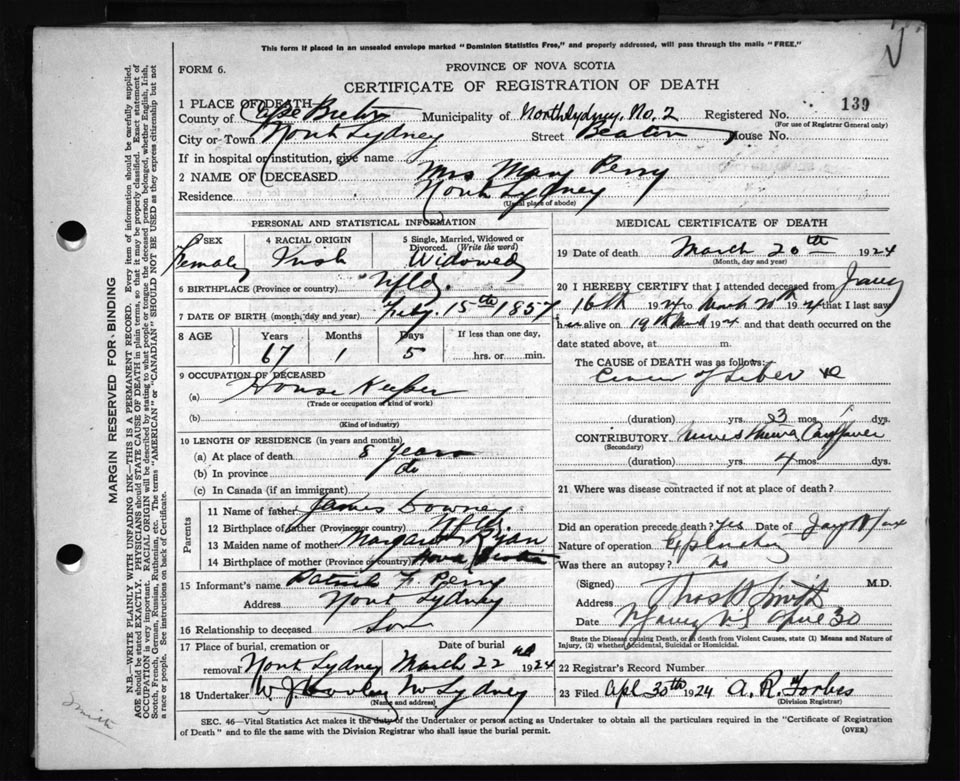 This form if placed in an unsealed envelope marked "Dominion Statistics Free," and properly addressed, will pass through the mails "FREE."
FORM 6.
PROVINCE OF NOVA SCOTIA
CERTIFICATE OF REGISTRATION OF DEATH
139
1 PLACE OF DEATH
County of Cape Breton Municipality of North Sydney, No. 2 Registered No.
(For use of Registrar General only)
City or Town North Sydney Street Beaton House No.
If in hospital or institution, give name
2 NAME OF DECEASED Mrs Mary Perry
Residence North Sydney
(Usual place of abode)
PERSONAL AND STATISTICAL INFORMATION
3 SEX Female
4 RACIAL ORIGIN Irish
5 Single, Married, Widowed or Divorced. (Write the word) Widowed
6 BIRTHPLACE (Province or country) Nfld.
7 DATE OF BIRTH (month, day and year) Feby. 15th 1857
8 AGE Years Months Days If less than one day,
67 1 5 hrs. or min.
9 OCCUPATION OF DECEASED
(a) House Keeper
(Trade or occupation or kind of work)
(b)
(Kind of industry)
10 LENGTH OF RESIDENCE (in years and months)
(a) At place of death 8 years
(b) In province do
(c) In Canada (if an immigrant)
Parents
11 Name of father James Downey
12 Birthplace of father (Province or country) Nfld.
13 Maiden name of mother Margaret Ryan
14 Birthplace of mother (Province or country) Nova Scotia
15 Informant's name Patrick F. Perry
Address North Sydney
16 Relationship to deceased Son
17 Place of burial, cremation or removal North Sydney
Date of burial March 22nd 1924
18 Undertaker W J Dooley No Sydney
(Name and address)
MEDICAL CERTIFICATE OF DEATH
19 Date of death March 20th 1924
(Month, day and year)
20 I HEREBY CERTIFY that I attended deceased from
16th 1924 to March 20th 1924 that I last saw
her alive on 19th 1924 and that death occurred on the
date stated above, at m.
The CAUSE of DEATH was as follows:
of Liver
(duration) yrs. 3 mos. dys.
CONTRIBUTORY
(Secondary)
(duration) yrs. 4 mos. dys.
21 Where was disease contracted if not at place of death?
Did an operation precede death? Yes Date of
Nature of operation
Was there an autopsy? no
(Signed) Smith M.D.
Address
Date 30
State the Disease causing Death, or in death from Violent Causes, state (1) Means and Nature of Injury, (2) whether Accidental, Suicidal or Homicidal.
22 Registrar's Record Number
23 Filed Apl 30th 1924 A. R. Forbes
(Division Registrar)
SEC. 46—Vital Statistics Act makes it the duty of the Undertaker or person acting as Undertaker to obtain all the particulars required in the "Certificate of Registration
of Death" and to file the same with the Division Registrar who shall issue the burial permit.
(OVER)
MARGIN RESERVED FOR BINDING
N.B.—WRITE PLAINLY WITH UNFADING INK—THIS IS A PERMANENT RECORD. Every item of information should be carefully supplied.
AGE should be stated EXACTLY. PHYSICIANS should STATE CAUSE OF DEATH in plain terms, so that it may be properly classified. Exact statement of
OCCUPATION is very important. RACIAL ORIGIN will be described by stating to what people or tongue the deceased person belonged, whether English, Irish,
Scotch, French, German, Russian, Ruthenian, etc. The terms "AMERICAN" or "CANADIAN" SHOULD NOT BE USED as they express citizenship but not
a race or people. See instructions on back of Certificate.
Smith